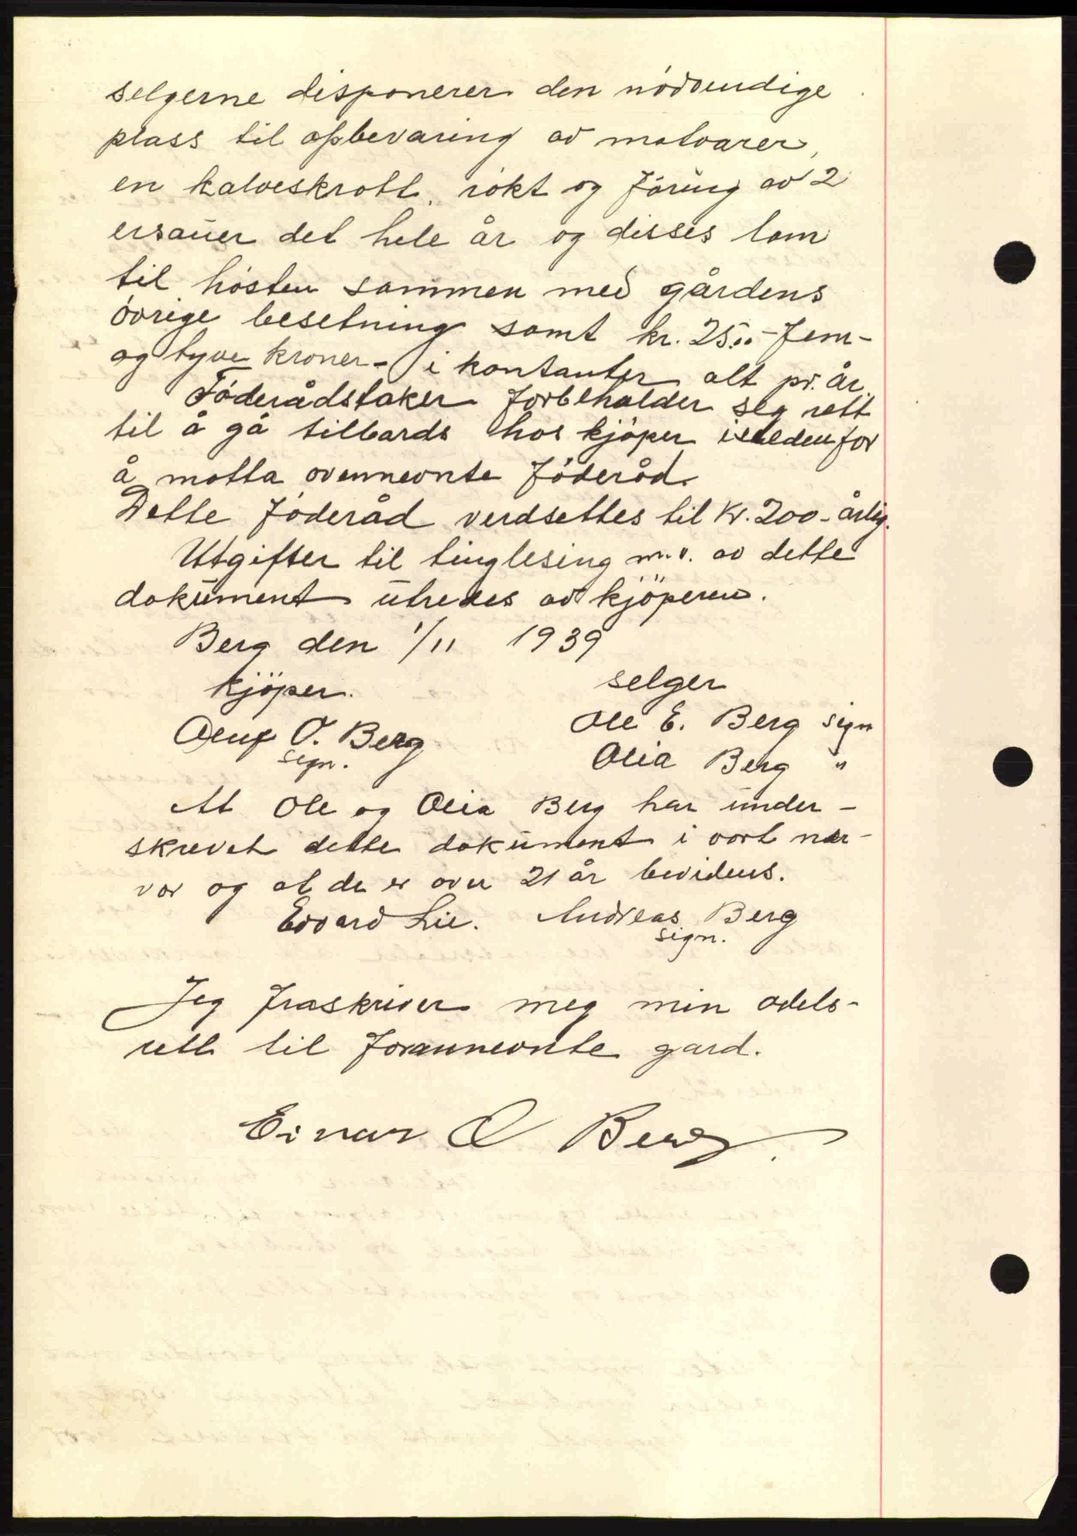 selgerne disponerer den nödvendige
plass til opbevaring av matvarer,
en kalveskrott, rökt og föring av 2
ersauer det hele år og disses lam
til hösten sammen med gårdens
övrige besetning samt kr. 25.00 - fem-
og tyve kroner - i kontanter alt pr. år.
Föderådstaker forbeholder seg rett
til å gå tilbords hos kjöper istedenfor
å motta ovennevnte föderåd.
Dette föderåd verdsettes til kr. 200 - årlig.
Utgifter til tinglesing m.v. av dette
dokument utredes av kjöperen.
Berg den 1/11 1939
kjöper. selger
Oluf O. Berg Ole E. Berg sign
sign. Olia Berg "
At Ole og Olia Berg har under-
skrevet dette dokument i vort nær-
vær og at de er over 21 år bevidnes.
Edvard Lie. Andreas Berg
sign.
Jeg fraskriver meg min odels-
rett til forannevnte gard.
Einar O Berg.